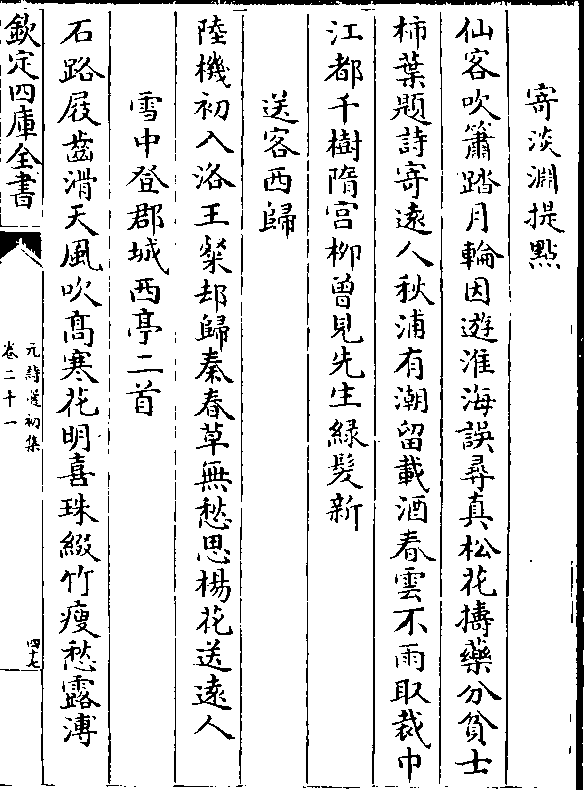 寄淡淵提點
仙客吹簫踏月輪因遊淮海誤尋真松花擣藥分貧士
柿葉題詩寄遠人秋浦有潮留載酒春雲不雨取裁巾
江都千樹隋宫柳曾見先生緑髮新
送客西歸
陸機初入洛王粲却歸秦春草無愁思楊花送遠人
雪中登郡城西亭二首
石路屐齒滑天風吹髙寒花明喜珠綴竹瘦愁露漙
欽定四庫全書
元詩選初集
卷二十一
四十七